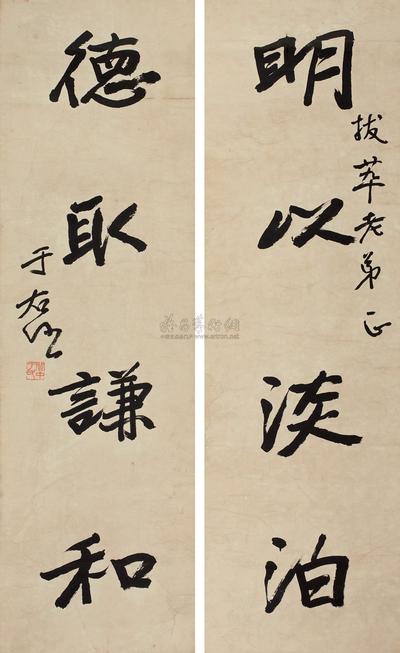 明以淡泊
拔萃老弟正
德取謙和
于右任
www.artron.net